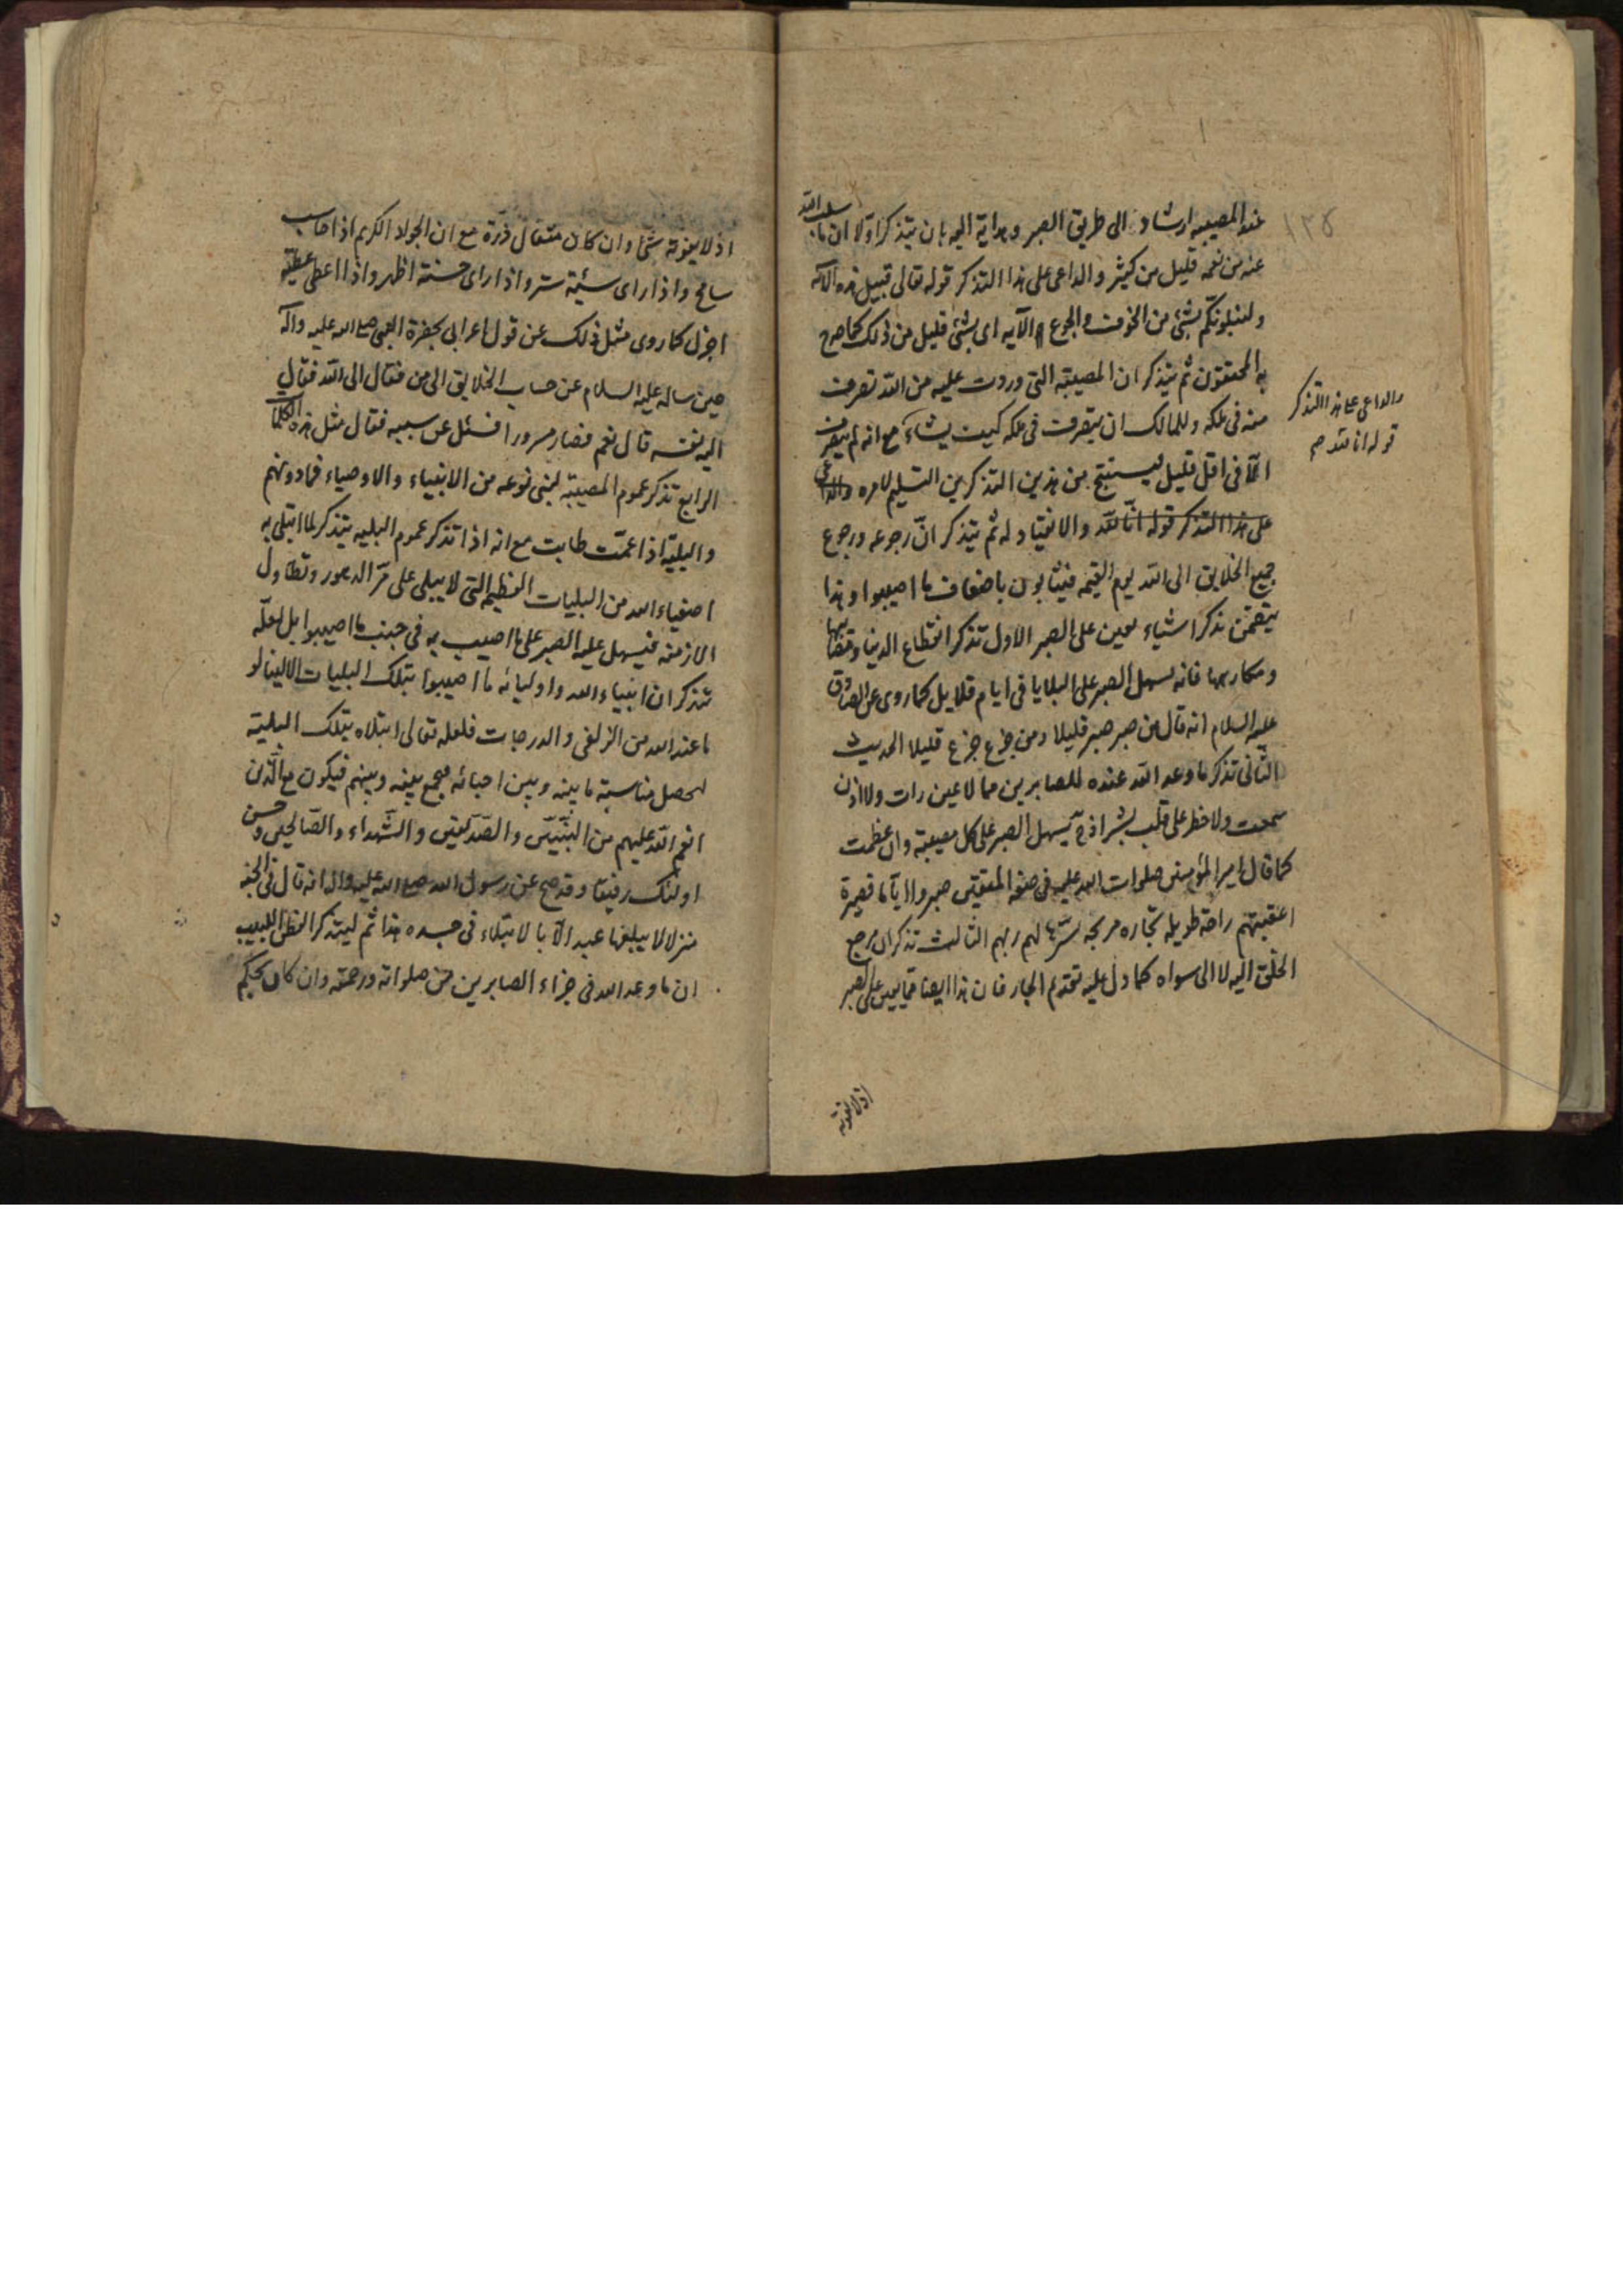 عند المصيبه ارشاد الى طريق الصبر وهداية اليه بان يتذكر اولا ان ما سلب الله
عنه من نعمه قليل من كثير والداعى على هذا التذكر قوله تعالى قبيل هذه الآيه
ولنبلونكم بشئ من الخوف والجوع الآيه اى بشئ قليل من ذلك كما صرح
به المحققون ثم يتذكر ان المصيبة التى وردت عليه من الله تصرف
منه فى ملكه وللمالك ان يتصرف فى ملكه كيف يشاء مع انه لم يتصرف
الّا فى اقل قليل ليستنتج من هذين التذكرين التسليم لامره والداعى
على هذا التذكر قوله انّا لله والانقياد له ثم يتذكر انّ رجوعه ورجوع
جميع الخلايق الى الله يوم القيمه فيثابون باضعاف ما اصيبوا وهذا
يتضمن تذكر اشياء يعين على الصبر الاول تذكر انقطاع الدنيا
ومكارهها فانه يسهل الصبر على البلايا فى ايام قلايل كما روى عن الصادق
عليه السلام انه قال من صبر صبر قليلا ومن جزع جزع قليلا الحديث
الثانى تذكر ما وعد الله عنده للصابرين مما لا عين رات ولا اذن
سمعت ولا خطر على قلب بشر اذ ح يسهل الصبر على كل مصيبة وان عظمت
كما قال امير المؤمنين صلوات الله عليه فى صفة المتقين صبروا ايّاما قصيرة
اعقبتهم راحة طويله تجاره مربحه يسّرها لهم ربهم الثالث تذكر ان مرجع
الخلق اليه لا الى سواه كما دل عليه تقديم الجار فان هذا ايضا مما يعين على الصبر
اذ لا يفوته
والداعى على هذا التذكر
قوله انا لله صح
١٣٥
اذ لا يفوته شئ وان كان مثقال ذرة مع ان الجواد الكريم اذا حاسب
سامح واذا راى سيئة ستر واذا راى حسنة اظهر واذا اعطى عطيّة
اجزل كما روى مثل ذلك عن قول اعرابى بحضرة النبى صلى الله عليه وآله
حين ساله عليه السلام عن حساب الخلايق الى من فقال الى الله فقال
اليه نفسه قال نعم فصار مسرورا فسئل عن سببه فقال مثل هذه الكلمات
الرابع تذكر عموم المصيبة لبنى نوعه من الانبياء والاوصياء فما دونهم
والبليّة اذا عمّت طابت مع انه اذا تذكر عموم البليه يتذكر لما ابتلى به
اصفياء الله من البليات العظيمه التى لا يبلى على مرّ الدهور وتطاول
الازمنه فيسهل عليه الصبر على ما اصيب به فى جنب ما اصيبوا بل لعلّه
تتذكر ان انبياء الله واوليائه ما اصيبوا بتلك البليات الا لينالوا
ما عند الله من الزلفى والدرجات فلعله تعالى ابتلاه بتلك البلية
ليحصل مناسبة ما بينه وبين احبائه فيجمع بينه وبينهم فيكون مع الّذين
انعم الله عليهم من النبيّين والصدّيقين والشّهداء والصّالحين وحسن
اولئك رفيقا وقد صح عن رسول الله صلى الله عليه واله انه قال فى الجنه
منزلا لا يبلغها عبد الّا بالابتلاء فى جسده هذا ثم ليتذكر الفطن اللبيب
ان ما وعد الله فى جزاء الصابرين من صلواته ورحمته وان كان بحكم